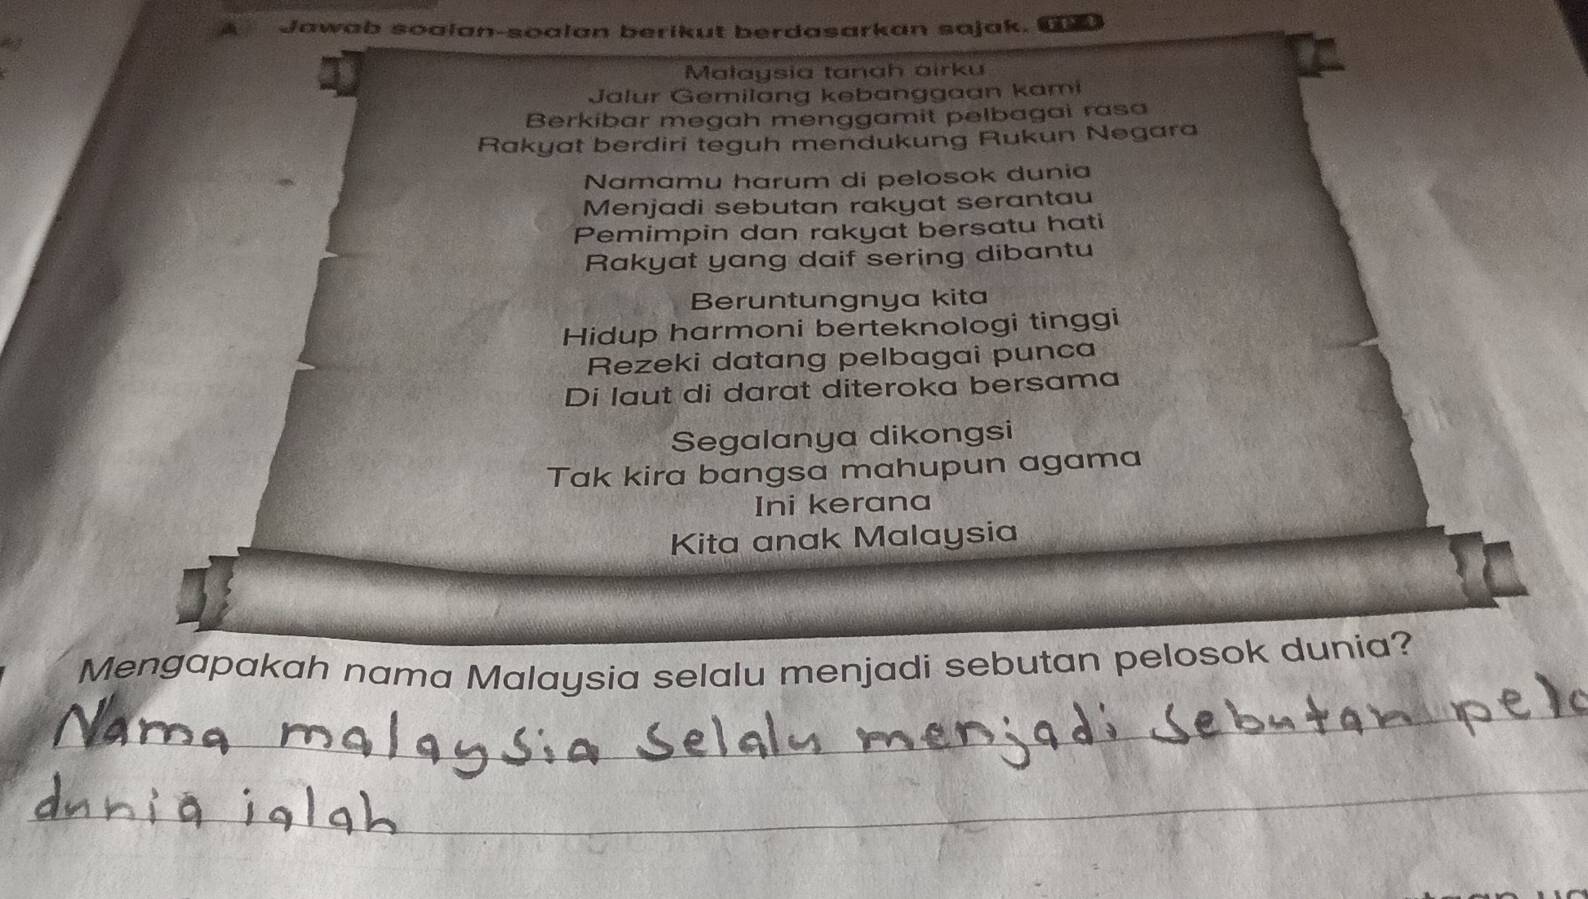 A Jawab soalan-soalan berikut berdasarkan sajak.
Malaysia tanah airku
Jalur Gemilang kebanggaan kami
Berkibar megah menggamit pelbagai rasa
Rakyat berdiri teguh mendukung Rukun Negara
Namamu harum di pelosok dunia
Menjadi sebutan rakyat serantau
Pemimpin dan rakyat bersatu hati
Rakyat yang daif sering dibantu
Beruntungnya kita
Hidup harmoni berteknologi tinggi
Rezeki datang pelbagai punca
Di laut di darat diteroka bersama
Segalanya dikongsi
Tak kira bangsa mahupun agama
Ini kerana
Kita anak Malaysia
Mengapakah nama Malaysia selalu menjadi sebutan pelosok dunia?
Nama malaysia selalu menjadi sebutan pelo
dunia ialah